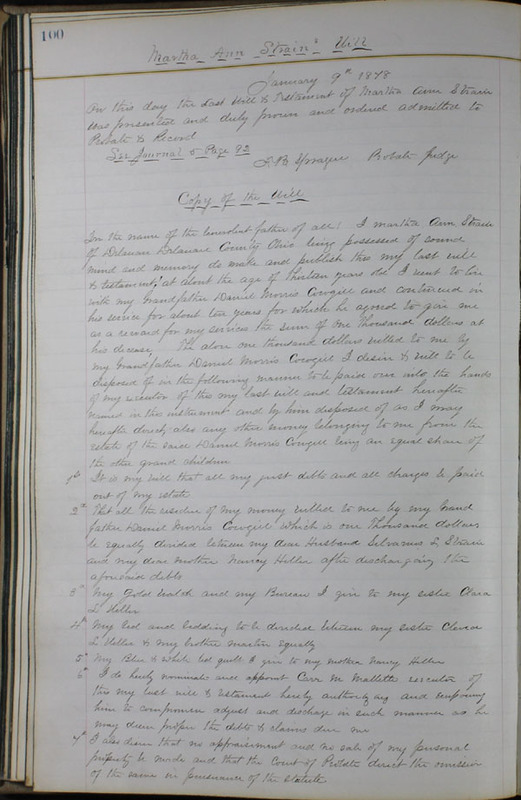 100
Martha Ann Strain's Will
January 9th 1878
On this day the Last Will & Testament of Martha Ann Strain
was presented and duly proven and ordered admitted to
Probate & Record
See Journal 5 Page 82
F. B. Sprague Probate Judge
Copy of the Will
In the name of the benevolent father of all! I Martha Ann Strain
of Delaware Delaware County Ohio being possessed of sound
mind and memory do make and publish this my last will
& testament, at about the age of thirteen years old I went to live
with my Grandfather Daniel Morris Cowgill and continued in
his service for about ten years for which he agreed to give me
as a reward for my services the sum of One Thousand dollars at
his decease, The above one thousand dollars willed to me by
my Grandfather Daniel Morris Cowgill I desire & will to be
disposed of in the following manner to be paid over into the hands
of my executor of this my last will and testament hereafter
named in this instrument and by him disposed of as I may
hereafter direct, also any other money belonging to me from the
estate of the said Daniel Morris Cowgill being an equal share of
the other grand children
1st It is my will that all my just debts and all charges be paid
out of my estate
2nd That all the residue of my money willed to me by my Grand
father Daniel Morris Cowgill which is one Thousand dollars
be equally divided between my dear Husband Silvanus L Strain
and my dear mother Nancy Heller after discharging the
aforesaid debts
3d My Gold Watch and my Bureau I give to my sister Clara
L Heller
4th My bed and bedding to be divided between my sister Clara
L Heller & my brother Martin equally
5th My Blue & White bed quilt I give to my mother Nancy Heller
6th I do hereby nominate and appoint Carr M Mallette executor of
this my last will & testament hereby authorizing and empowering
him to compromise adjust and discharge in such manner as he
may deem proper the debts & claims due me
7th I also desire that no appraisement and no sale of my personal
property be made and that the Court of Probate direct the omission
of the same in pursuance of the statute